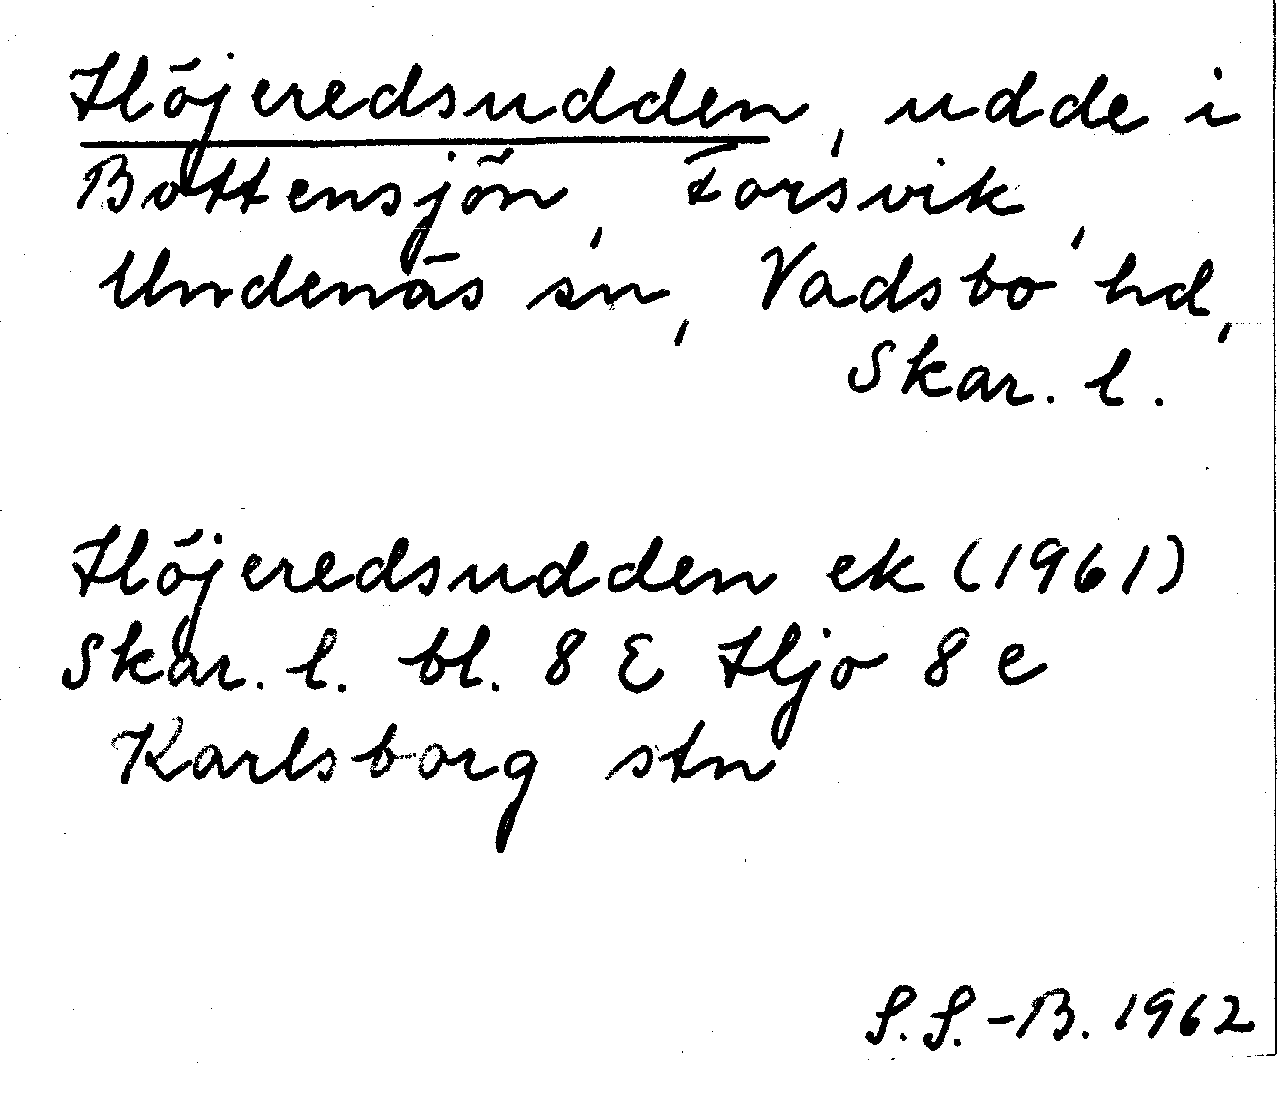 Höjeredsudden, udde i
Bottensjön, Forsvik,
Undenäs sn, Vadsbo hd,
Skar. l.
Höjeredsudden ek (1961)
Skar. l. bl. 8 E Hjo 8 e
Karlsborg stn
S.S.-B. 1962